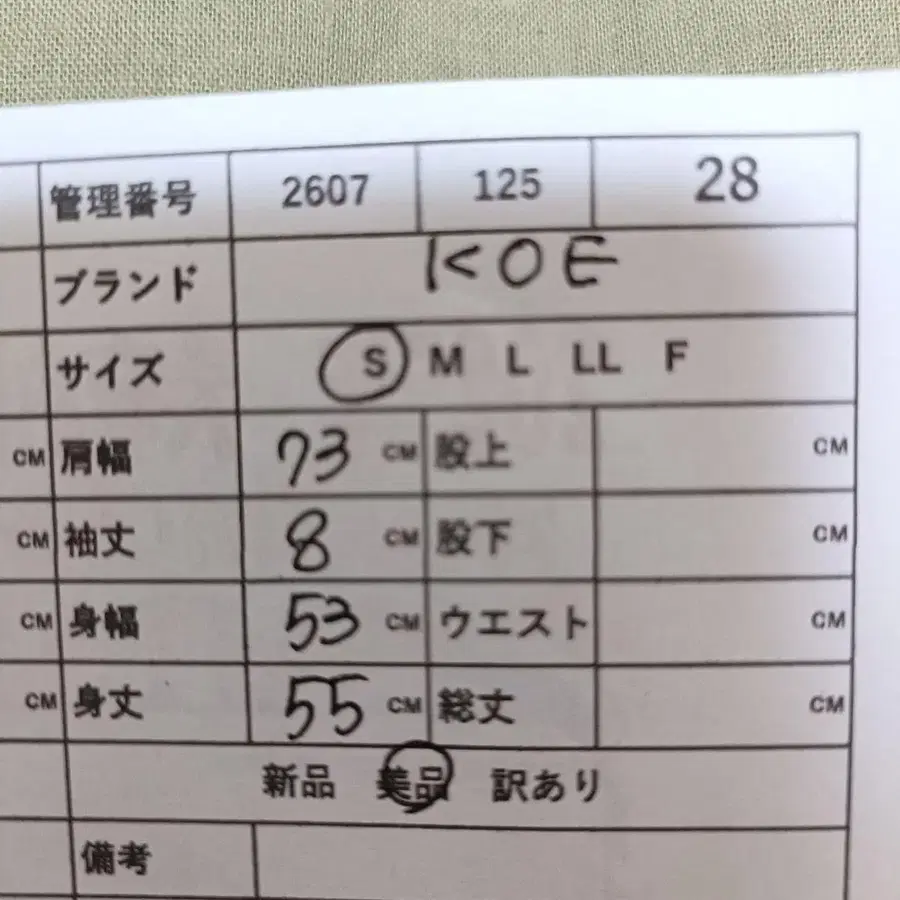 管理番号 2607 125 28
ブランド KOE
サイズ S M L LL F
CM 肩幅 73 CM 股上 CM
CM 袖丈 8 CM 股下 CM
CM 身幅 53 CM ウエスト CM
CM 身丈 55 CM 総丈 CM
新品 美品 訳あり
備考